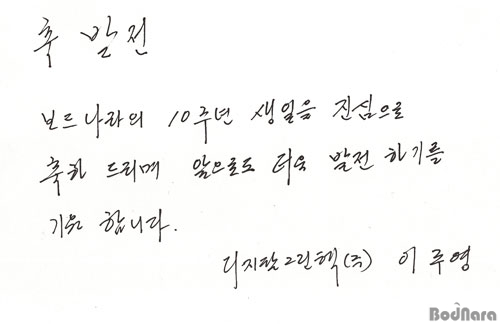 축 발전
보드나라의 10주년 생일을 진심으로
축하 드리며 앞으로도 더욱 발전 하기를
기원 합니다.
디지탈그린텍(주) 이 주 영
BodNara